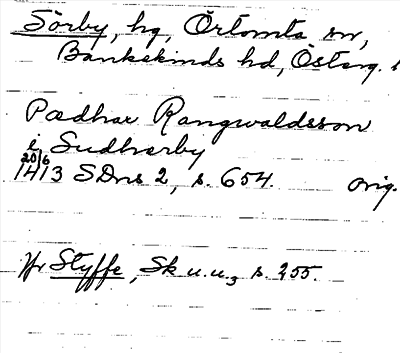 Sörby, hg, Örtomta sn,
Bankekinds hd, Österg.
Pædhar Rangwaldsson
i Sudherby
20/6
1413 SDns 2, s. 654. orig.
Jfr Styffe, Sk u.u.3 s. 255.